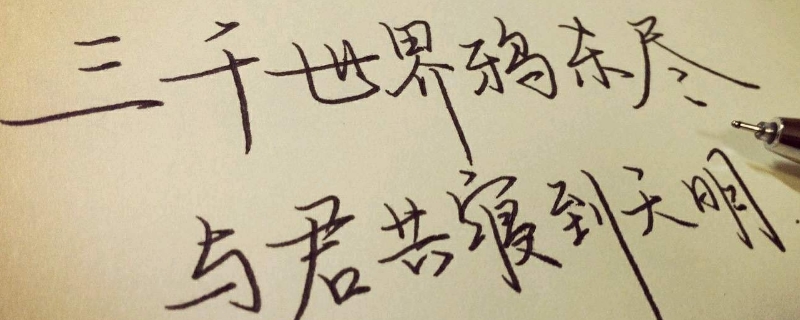 三千世界鸦杀尽
与君共寝到天明